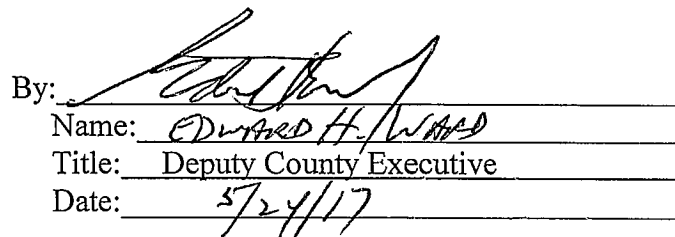 By:
Name: EDWARD H. WARD
Title: Deputy County Executive
Date: 5/24/17